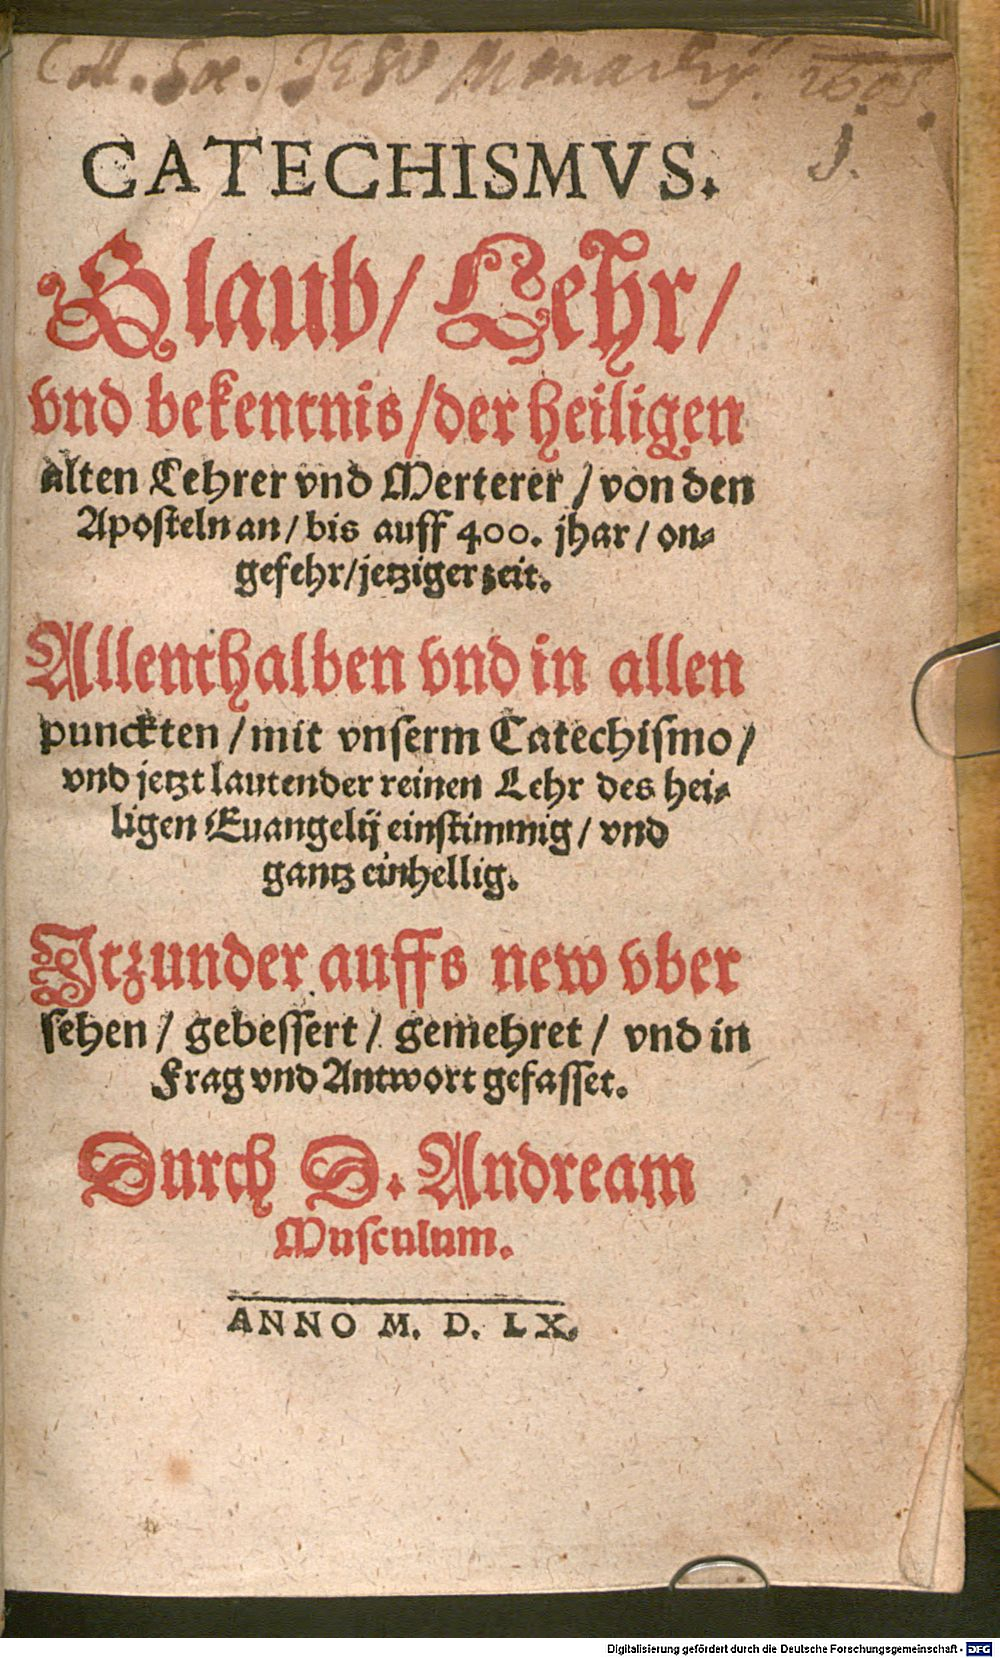 Coll. Soc. JESV Monachij. 1608.
J.
CATECHISMVS.
Glaub / Lehr /
vnd bekentnis / der heiligen
alten Lehrer vnd Merterer / von den
Aposteln an / bis auff 400. jhar / on⸗
gefehr / jetziger zeit.
Allenthalben vnd in allen
punckten / mit vnserm Catechismo /
vnd jetzt lautender reinen Lehr des hei⸗
ligen Euangelij einstimmig / vnd
gantz einhellig.
Itzunder auffs new vber
sehen / gebessert / gemehret / vnd in
Frag vnd Antwort gefasset.
Durch D. Andream
Musculum.
ANNO M. D. LX.
Digitalisierung gefördert durch die Deutsche Forschungsgemeinschaft - DFG